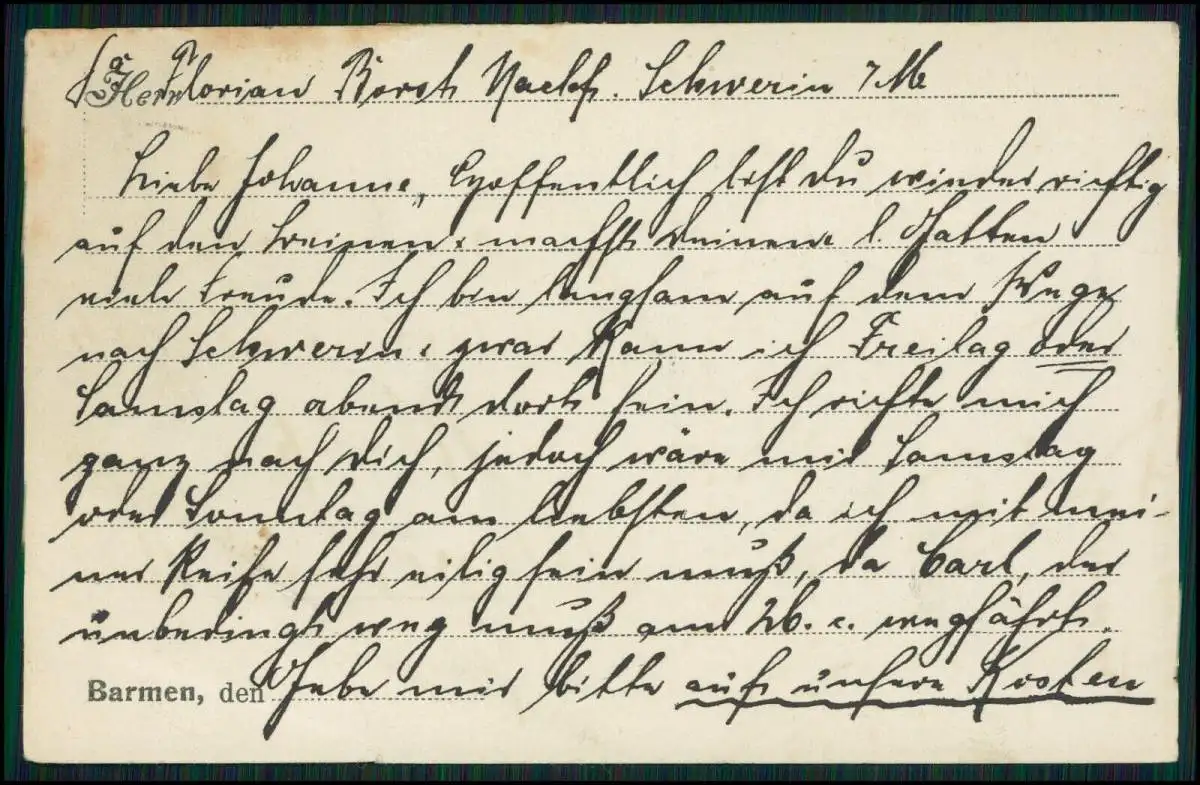 Florian Borst Nachf. Schwerin i/M
Liebe Johanne, Hoffentlich bist Du wieder richtig
auf den Beinen u. machst Deinem l. Gatten
viele Freude. Ich bin langsam auf dem Wege
nach Schwerin u. zwar kann ich Freitag oder
Samstag abend dort sein. Ich richte mich
ganz nach Dich, jedoch wäre mir Samstag
oder Sonntag am liebsten, da ich mit mei-
ner Reise sehr eilig sein muß, da Carl, der
unbedingt weg muß am 26. c. wegfährt.
Barmen, den Gebe mir bitte auf unsere Kosten